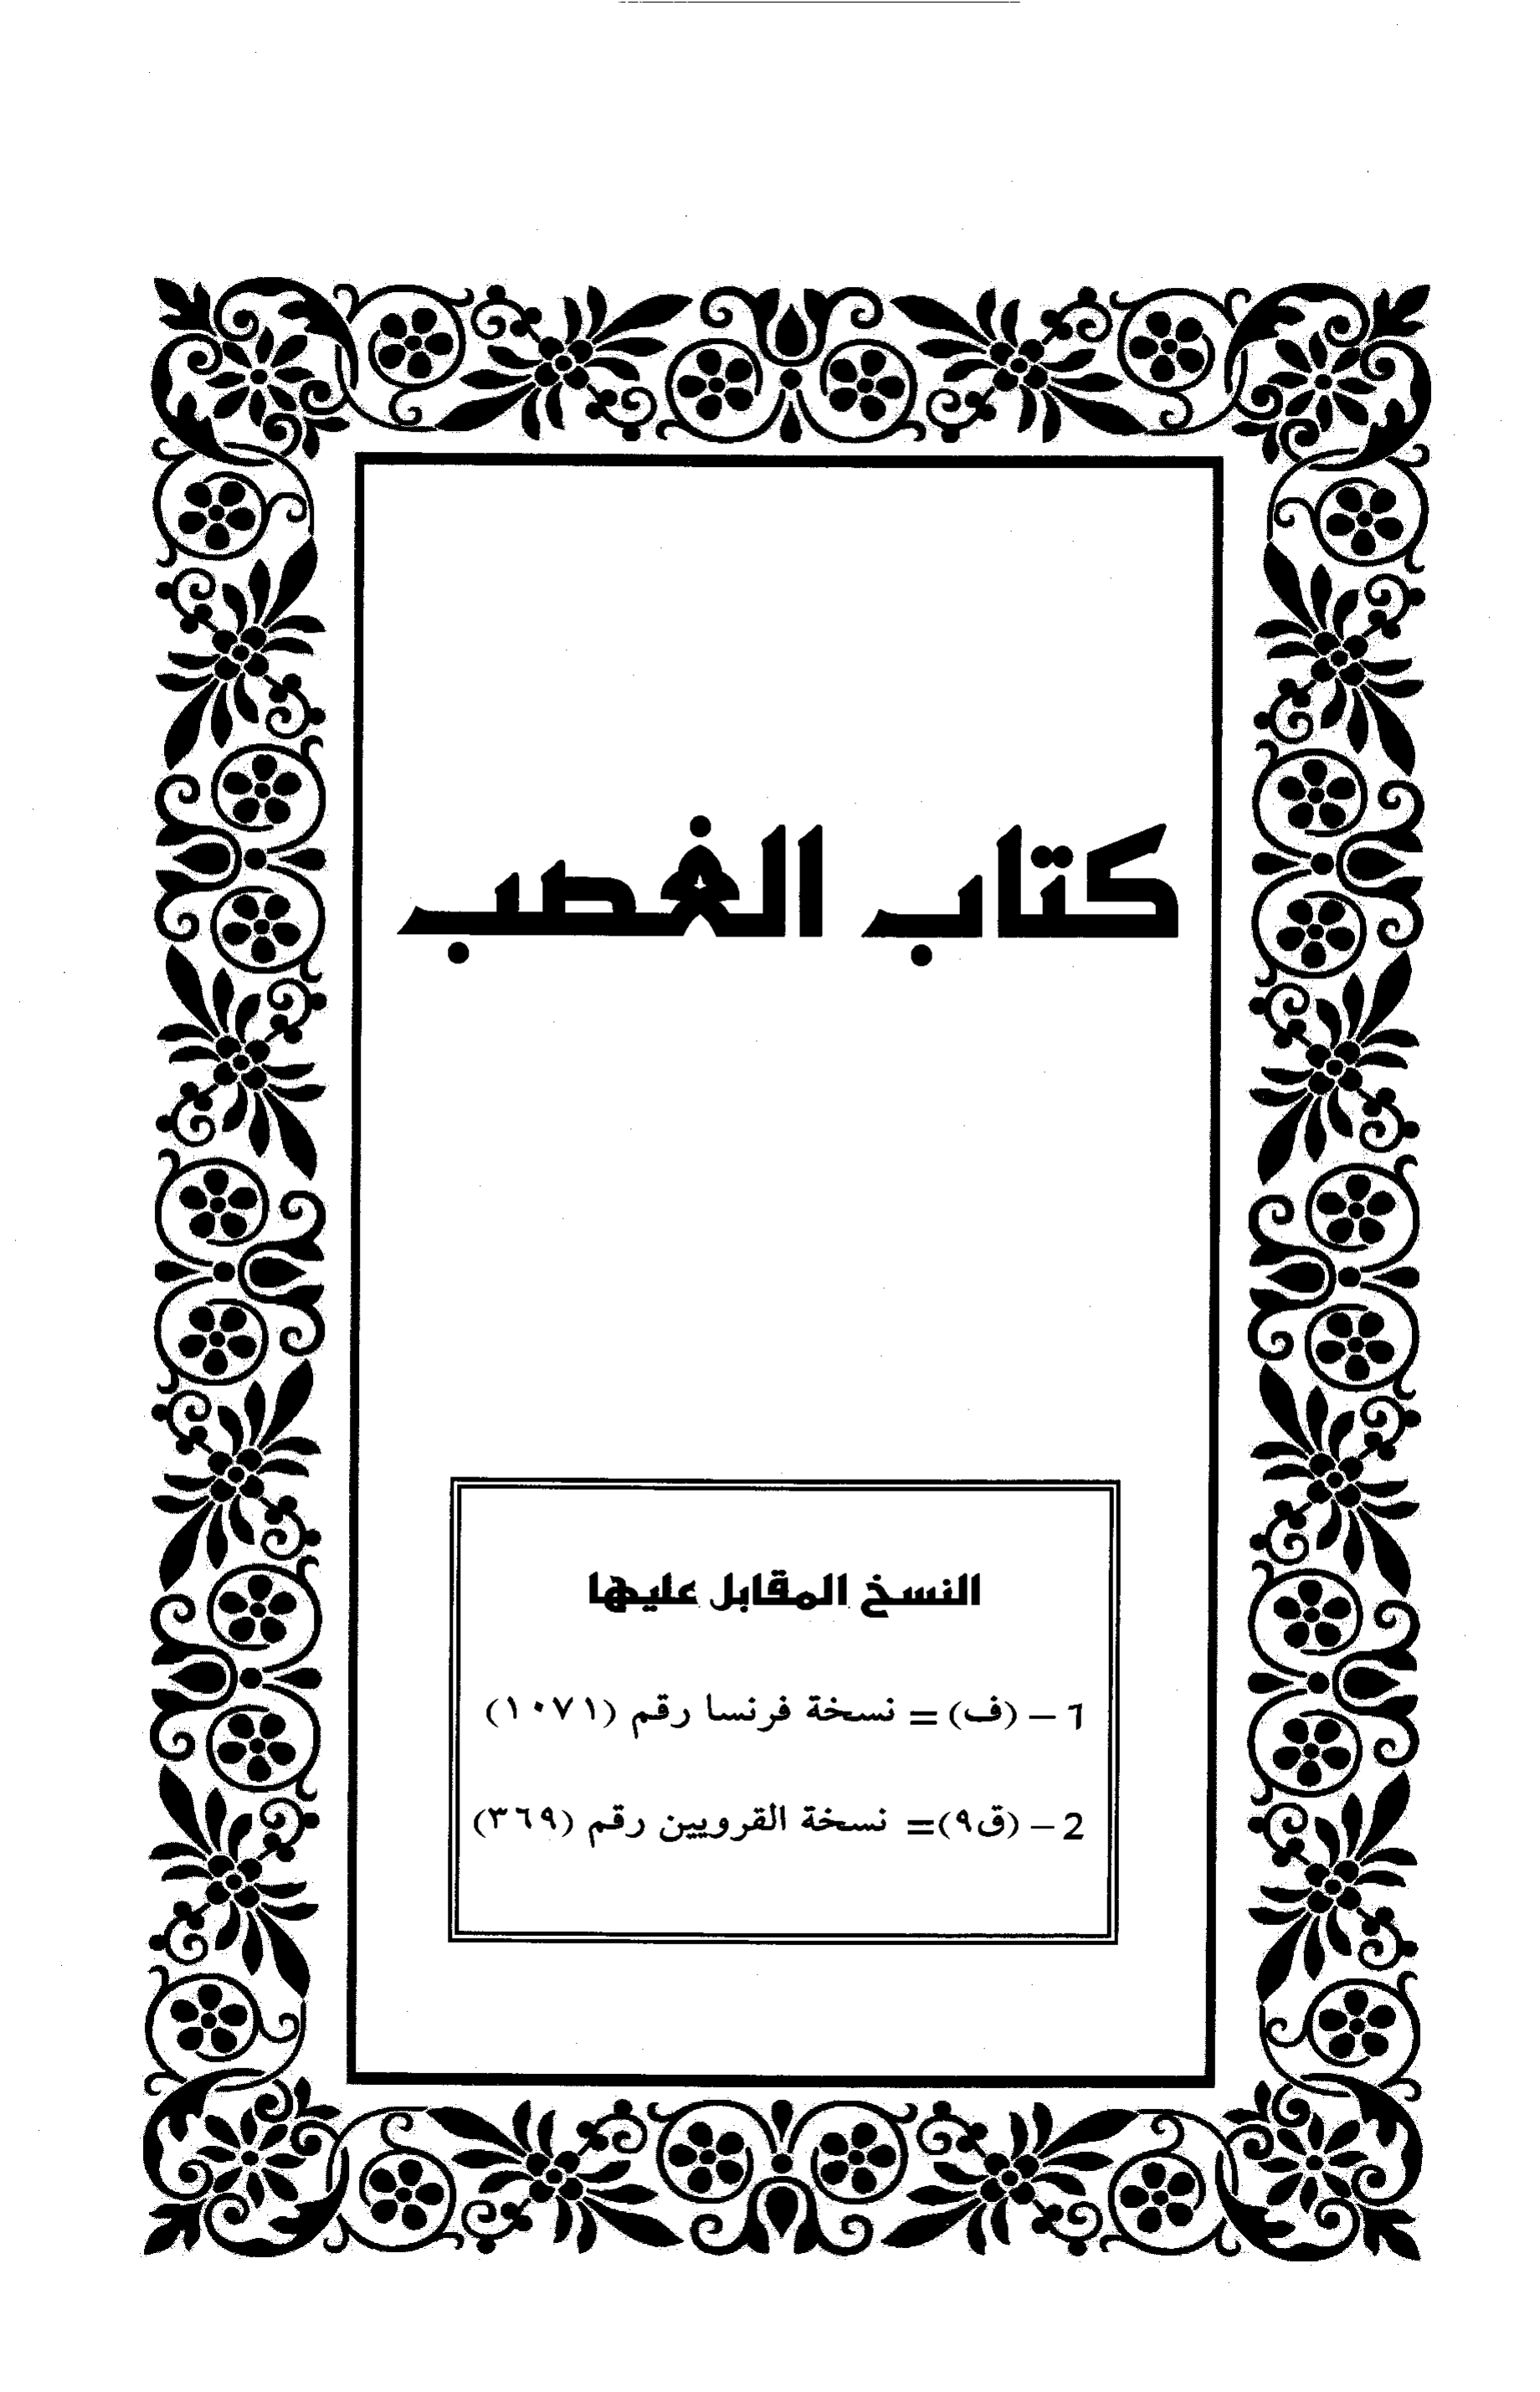 كتاب الغصب
النسخ المقابل عليها
1 – (ف) = نسخة فرنسا رقم (١٠٧١)
2 – (ق٩)= نسخة القرويين رقم (٣٦٩)